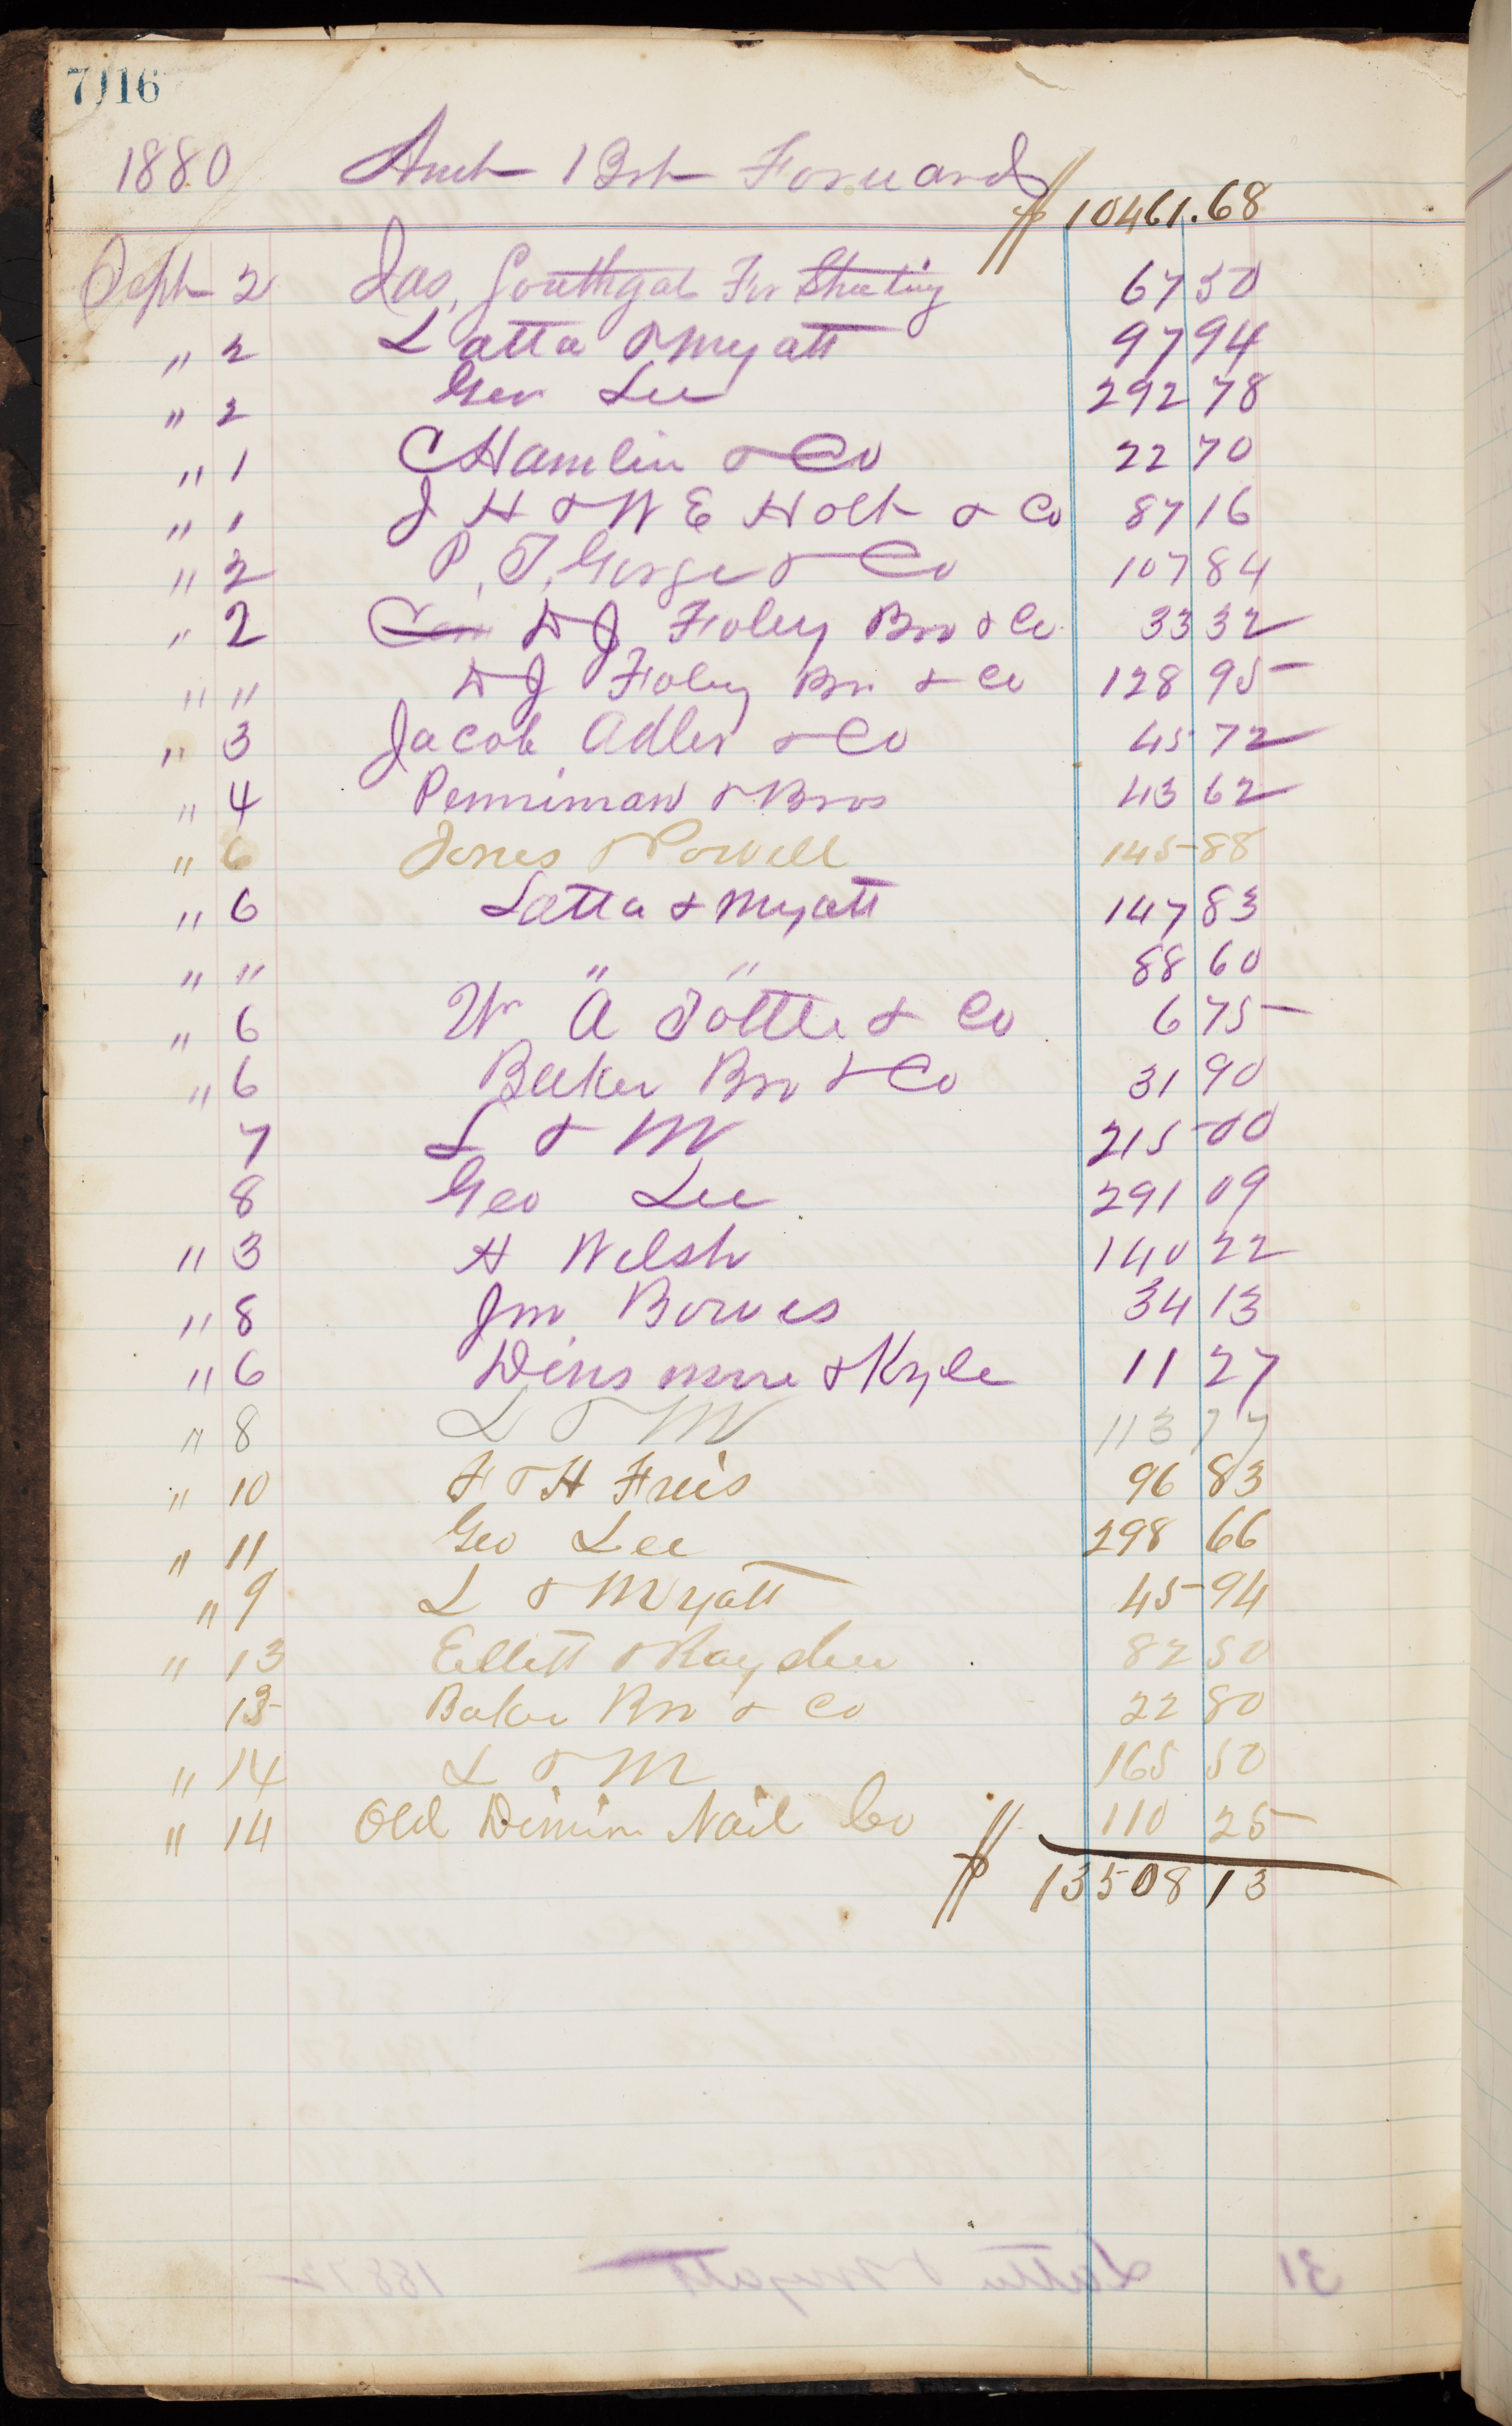 7)16
1880 Amt Brt Forward $10461.68
Sept 2 Jas, Southgate For Sheeting 67 50
" 2 Latta & Myatt 97 94
" 2 Geo Lee 292 78
" 1 C Hamlin & Co 22 70
" 1 J H & W E Holt & Co 87 16
" 2 P. T. George & Co 107 84
" 2 D J Foley Bro & Co 33 32
" " D J Foley Bro & Co 128 95
" 3 Jacob Adler & Co 45 72
" 4 Penniman & Bros 43 62
" 6 Jones & Powell 145 88
" 6 Latta & Myatt 147 83
" " " " 88 60
" 6 Wm A Tottle & Co 6 75
" 6 Baker Bro & Co 31 90
7 L & M 215 00
8 Geo Lee 291 09
" 3 H Welsh 140 22
" 8 Jno Bowes 34 13
" 6 Dinsmore & Kyle 11 27
" 8 L & M 113 77
" 10 F & H Fries 96 83
" 11 Geo Lee 298 66
" 9 L & Myatt 45 94
" 13 Ellett & 82 50
13 Baker Bro & Co 22 80
" 14 L & M 165 50
" 14 Old Dominion Nail Co 110 25
$ 13508 13